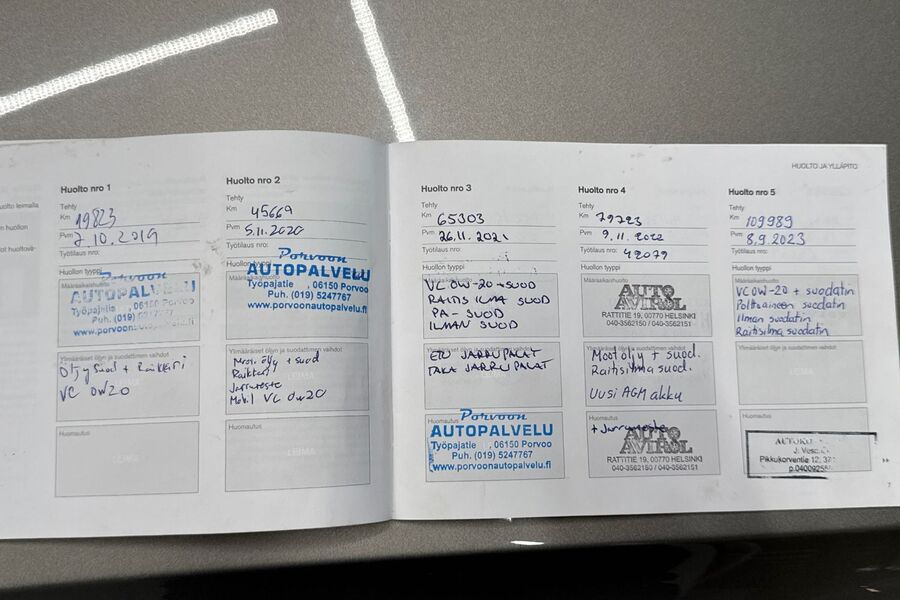 HUOLTO JA YLLÄPITO
uolto leimalla
n huollon
ot huoltovä-
Huolto nro 1
Tehty
Km 19823
Pvm 7.10.2019
Työtilaus nro:
Huollon tyyppi
Määräaikaishuolto
Porvoon
AUTOPALVELU
Työpajatie , 06150 Porvoo
Puh. (019) 5247767
www.porvoonautopalvelu.fi
Ylimääräiset öljyn ja suodattimen vaihdot
Öljy suod + Raikkari
VC 0W20
Huomautus
LEIMA
Huolto nro 2
Tehty
Km 45669
Pvm 5.11.2020
Työtilaus nro:
Huollon tyyppi
Määräaikaishuolto
Porvoon
AUTOPALVELU
Työpajatie , 06150 Porvoo
Puh. (019) 5247767
www.porvoonautopalvelu.fi
Ylimääräiset öljyn ja suodattimen vaihdot
Moot. öljy + suod
Raikkari
Jarruneste
Mobil VC 0w20
Huomautus
LEIMA
Huolto nro 3
Tehty
Km 65303
Pvm 26.11.2021
Työtilaus nro:
Huollon tyyppi
VC 0W-20 + SUOD
RAITIS ILMA SUOD
PA - SUOD
ILMAN SUOD
ETU JARRUPALAT
TAKA JARRUPALAT
Huomautus
Porvoon
AUTOPALVELU
Työpajatie , 06150 Porvoo
Puh. (019) 5247767
www.porvoonautopalvelu.fi
Huolto nro 4
Tehty
Km 79723
Pvm 9.11.2022
Työtilaus nro: 42079
Huollon tyyppi
Määräaikaishuolto
AUTO
AVIROL
RATTITIE 19, 00770 HELSINKI
040-3562150 / 040-3562151
Ylimääräiset öljyn ja suodattimen vaihdot
Moot.öljy + suod.
Raitisilma suod.
Uusi AGM akku
Huomautus
+ Jarruneste
AUTO
AVIROL
RATTITIE 19, 00770 HELSINKI
040-3562150 / 040-3562151
Huolto nro 5
Tehty
Km 109989
Pvm 8.9.2023
Työtilaus nro:
Huollon tyyppi
Määräaikaishuolto
VC 0W-20 + suodatin
Polttoaineen suodatin
Ilman suodatin
Raitisilma suodatin
Ylimääräiset öljyn ja suodattimen vaihdot
Huomautus
Pikkukorventie 12,
7